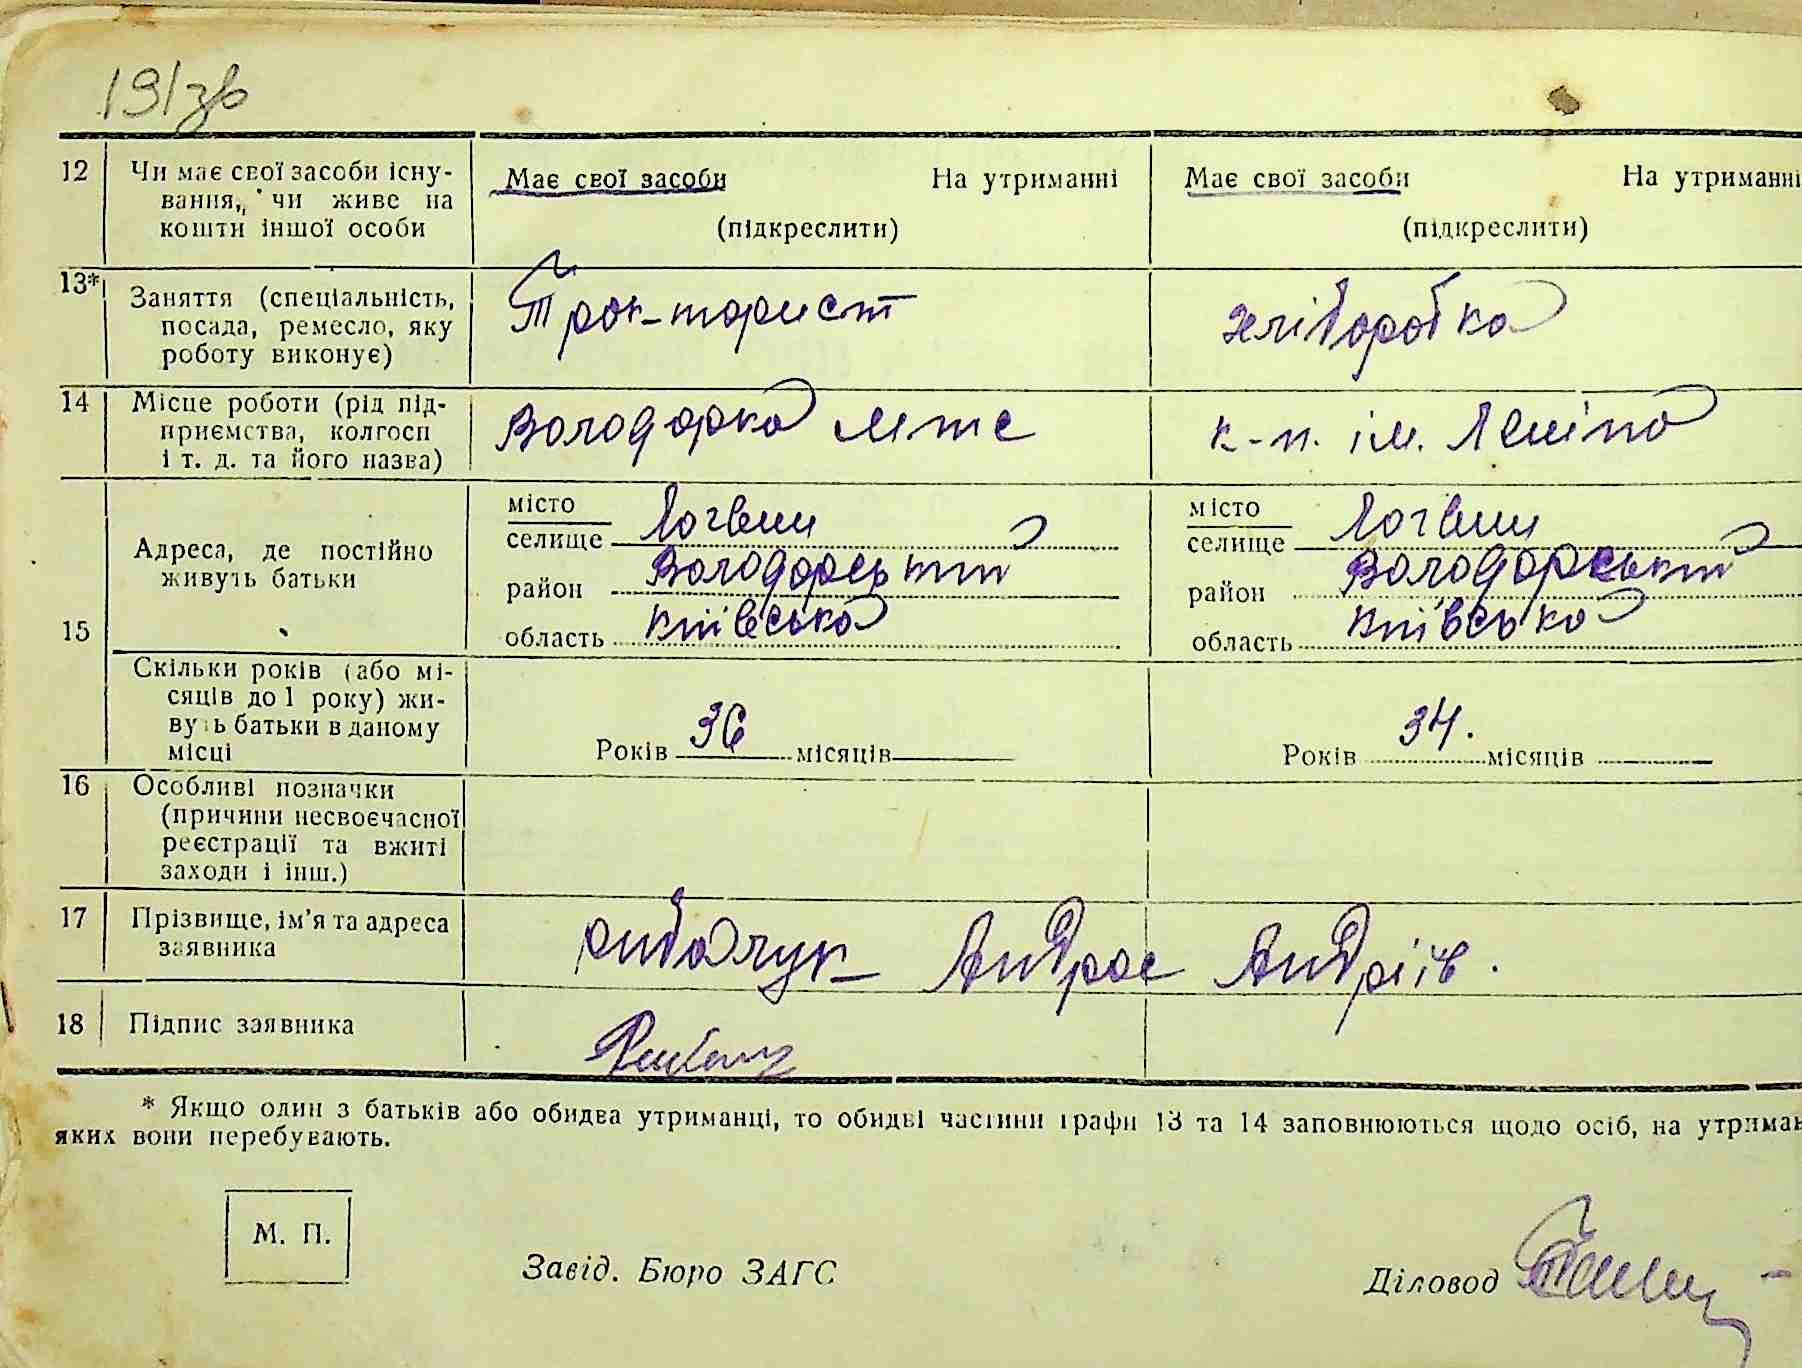 191зв
12 Чи має свої засоби існу- Має свої засоби На утриманні Має свої засоби На утриманні
вання, чи живе на
кошти іншої особи (підкреслити) (підкреслити)
13* Заняття (спеціальність, Трак-торист хліборобка
посада, ремесло, яку
роботу виконує)
14 Місце роботи (рід під- Володарка мтс к-п. ім. Леніна
приємства, колгосп
і т. д. та його назва)
місто місто
селище Логвин селище Логвин
Адреса, де постійно район Володарський район Володарський
живуть батьки
15 область Київська область Київська
Скільки років (або мі-
сяців до 1 року) жи-
вуть батьки в даному Років 36 місяців Років 34. місяців
місці
16 Особливі позначки
(причини несвоєчасної
реєстрації та вжиті
заходи і інш.)
17 Прізвище, ім'я та адреса Рибачук Андрос Андріїв.
заявника
18 Підпис заявника
* Якщо один з батьків або обидва утриманці, то обидві частини графи 13 та 14 заповнюються щодо осіб, на утриман
яких вони перебувають.
М. П.
Завід. Бюро ЗАГС Діловод